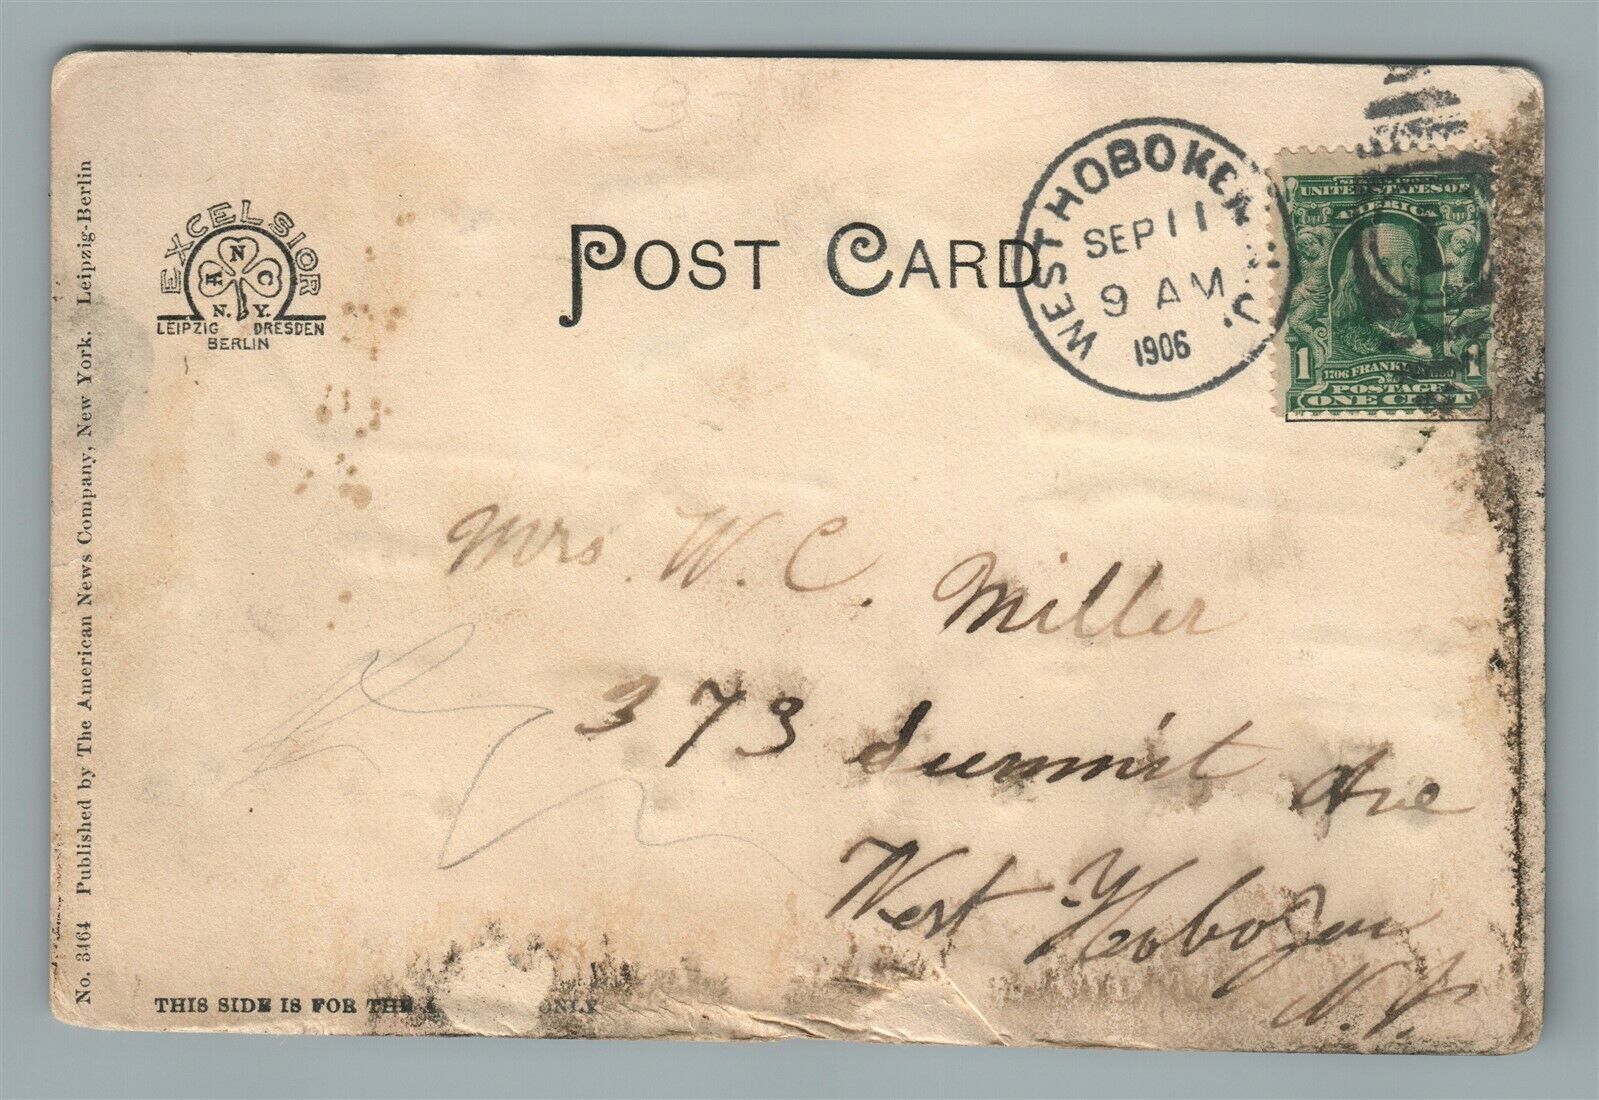 EXCELSIOR
A N C
N. Y.
LEIPZIG DRESDEN
BERLIN
POST CARD
WEST HOBOKEN N.J.
SEP 11
9 AM
1906
UNITED STATES OF
AMERICA
1 1706 FRANKLIN 1790 1
POSTAGE
ONE CENT
Mrs. W. C. Miller
373 Summit Ave
West Hoboken
N.J.
THIS SIDE IS FOR THE ONLY
No. 3464 Published by The American News Company, New York. Leipzig-Berlin